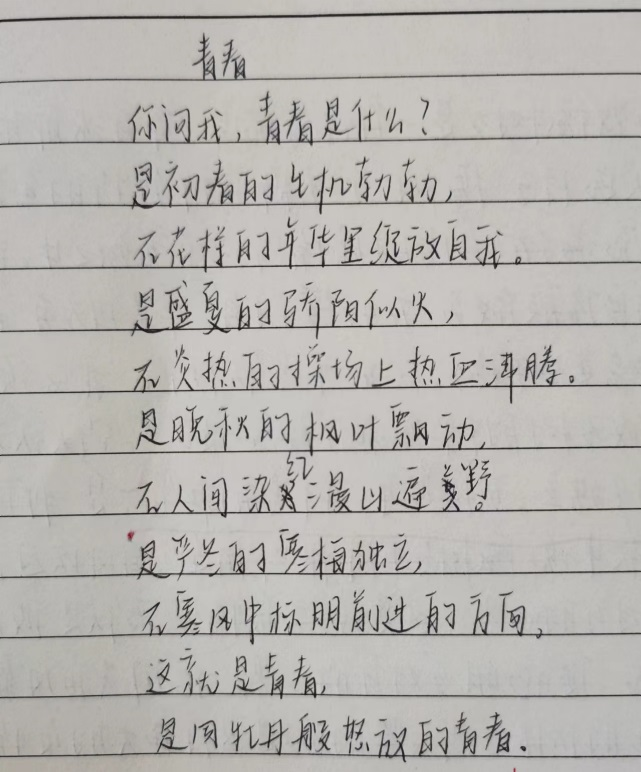 青春
你问我，青春是什么？
是初春的生机勃勃，
在花样的年华里绽放自我。
是盛夏的骄阳似火，
在炎热的操场上热血沸腾。
是晚秋的枫叶飘动，
在人间染红漫山遍野。
是严冬的寒梅独立，
在寒风中标明前进的方向。
这就是青春，
是同牡丹般怒放的青春。